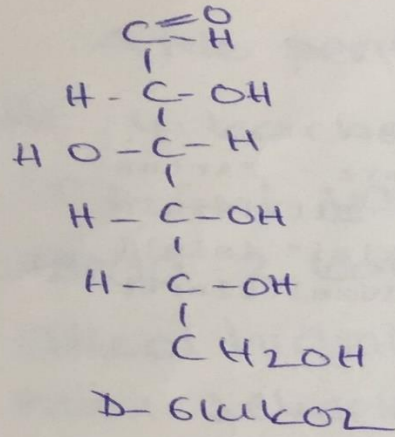 C=O
C-H
H-C-OH
HO-C-H
H-C-OH
H-C-OH
CH2OH
D-GlukOz